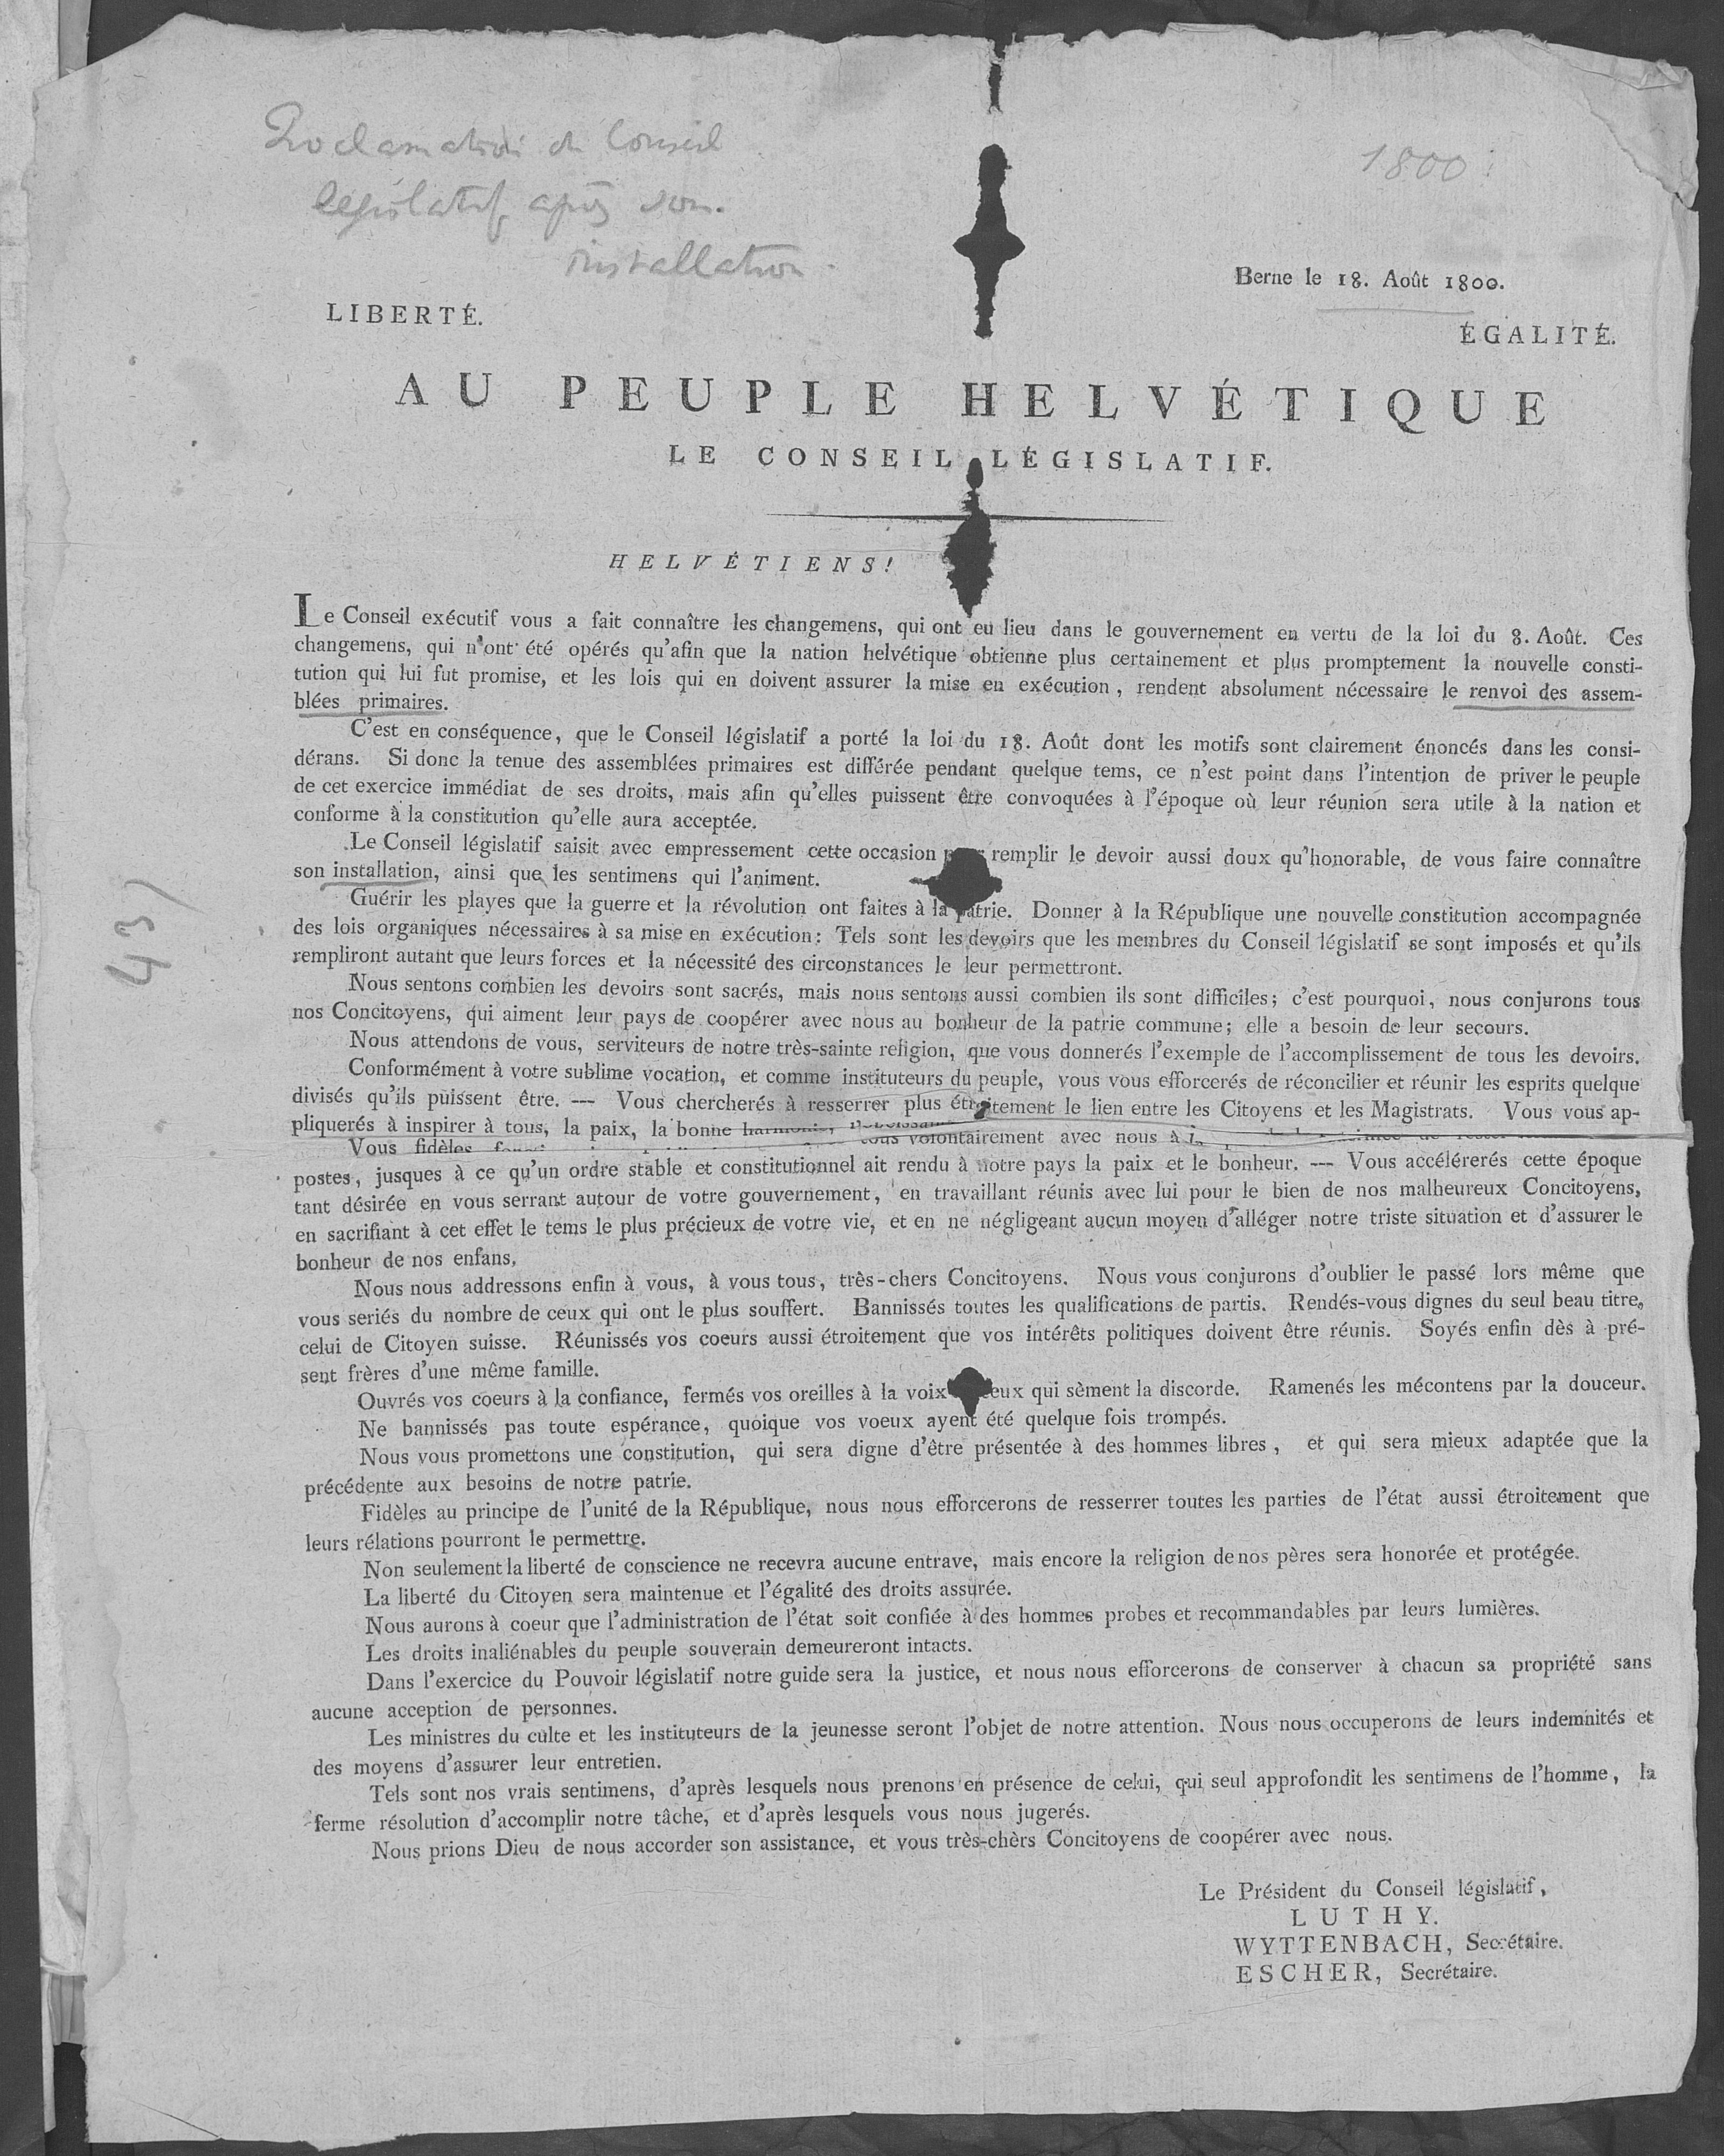 Proclamation du Conseil
législatif, après son
installation.
1800
Berne le 18. Août 1800.
LIBERTÉ.
ÉGALITÉ.
AU PEUPLE HELVÉTIQUE
LE CONSEIL LÉGISLATIF.
HELVÉTIENS!
Le Conseil exécutif vous a fait connaître les changemens, qui ont eu lieu dans le gouvernement en vertu de la loi du 8. Août. Ces
changemens, qui n'ont été opérés qu'afin que la nation helvétique obtienne plus certainement et plus promptement la nouvelle consti-
tution qui lui fut promise, et les lois qui en doivent assurer la mise en exécution, rendent absolument nécessaire le renvoi des assem-
blées primaires.
C'est en conséquence, que le Conseil législatif a porté la loi du 18. Août dont les motifs sont clairement énoncés dans les consi-
dérans. Si donc la tenue des assemblées primaires est différée pendant quelque tems, ce n'est point dans l'intention de priver le peuple
de cet exercice immédiat de ses droits, mais afin qu'elles puissent être convoquées à l'époque où leur réunion sera utile à la nation et
conforme à la constitution qu'elle aura acceptée.
Le Conseil législatif saisit avec empressement cette occasion remplir le devoir aussi doux qu'honorable, de vous faire connaître
son installation, ainsi que les sentimens qui l'animent.
Guérir les playes que la guerre et la révolution ont faites à la patrie. Donner à la République une nouvelle constitution accompagnée
des lois organiques nécessaires à sa mise en exécution: Tels sont les devoirs que les membres du Conseil législatif se sont imposés et qu'ils
rempliront autant que leurs forces et la nécessité des circonstances le leur permettront.
Nous sentons combien les devoirs sont sacrés, mais nous sentons aussi combien ils sont difficiles; c'est pourquoi, nous conjurons tous
nos Concitoyens, qui aiment leur pays de coopérer avec nous au bonheur de la patrie commune; elle a besoin de leur secours.
Nous attendons de vous, serviteurs de notre très-sainte religion, que vous donnerés l'exemple de l'accomplissement de tous les devoirs.
Conformément à votre sublime vocation, et comme instituteurs du peuple, vous vous efforcerés de réconcilier et réunir les esprits quelque
divisés qu'ils puissent être. --- Vous chercherés à resserrer plus étroitement le lien entre les Citoyens et les Magistrats. Vous vous ap-
pliquerés à inspirer à tous, la paix, la bonne harmonie,
Vous fidèles volontairement avec nous à
postes, jusques à ce qu'un ordre stable et constitutionnel ait rendu à notre pays la paix et le bonheur. --- Vous accélérerés cette époque
tant désirée en vous serrant autour de votre gouvernement, en travaillant réunis avec lui pour le bien de nos malheureux Concitoyens,
en sacrifiant à cet effet le tems le plus précieux de votre vie, et en ne négligeant aucun moyen d'alléger notre triste situation et d'assurer le
bonheur de nos enfans,
Nous nous addressons enfin à vous, à vous tous, très-chers Concitoyens. Nous vous conjurons d'oublier le passé lors même que
vous seriés du nombre de ceux qui ont le plus souffert. Bannissés toutes les qualifications de partis. Rendés-vous dignes du seul beau titre,
celui de Citoyen suisse. Réunissés vos coeurs aussi étroitement que vos intérêts politiques doivent être réunis. Soyés enfin dès à pré-
sent frères d'une même famille.
Ouvrés vos coeurs à la confiance, fermés vos oreilles à la voix ceux qui sèment la discorde. Ramenés les mécontens par la douceur.
Ne bannissés pas toute espérance, quoique vos voeux ayent été quelque fois trompés.
Nous vous promettons une constitution, qui sera digne d'être présentée à des hommes libres, et qui sera mieux adaptée que la
précédente aux besoins de notre patrie.
Fidèles au principe de l'unité de la République, nous nous efforcerons de resserrer toutes les parties de l'état aussi étroitement que
leurs rélations pourront le permettre.
Non seulement la liberté de conscience ne recevra aucune entrave, mais encore la religion de nos pères sera honorée et protégée.
La liberté du Citoyen sera maintenue et l'égalité des droits assurée.
Nous aurons à coeur que l'administration de l'état soit confiée à des hommes probes et recommandables par leurs lumières.
Les droits inaliénables du peuple souverain demeureront intacts.
Dans l'exercice du Pouvoir législatif notre guide sera la justice, et nous nous efforcerons de conserver à chacun sa propriété sans
aucune acception de personnes.
Les ministres du culte et les instituteurs de la jeunesse seront l'objet de notre attention. Nous nous occuperons de leurs indemnités et
des moyens d'assurer leur entretien.
Tels sont nos vrais sentimens, d'après lesquels nous prenons en présence de celui, qui seul approfondit les sentimens de l'homme, la
ferme résolution d'accomplir notre tâche, et d'après lesquels vous nous jugerés.
Nous prions Dieu de nous accorder son assistance, et vous très-chèrs Concitoyens de coopérer avec nous.
Le Président du Conseil législatif,
LUTHY.
WYTTENBACH, Secrétaire.
ESCHER, Secrétaire.
43)